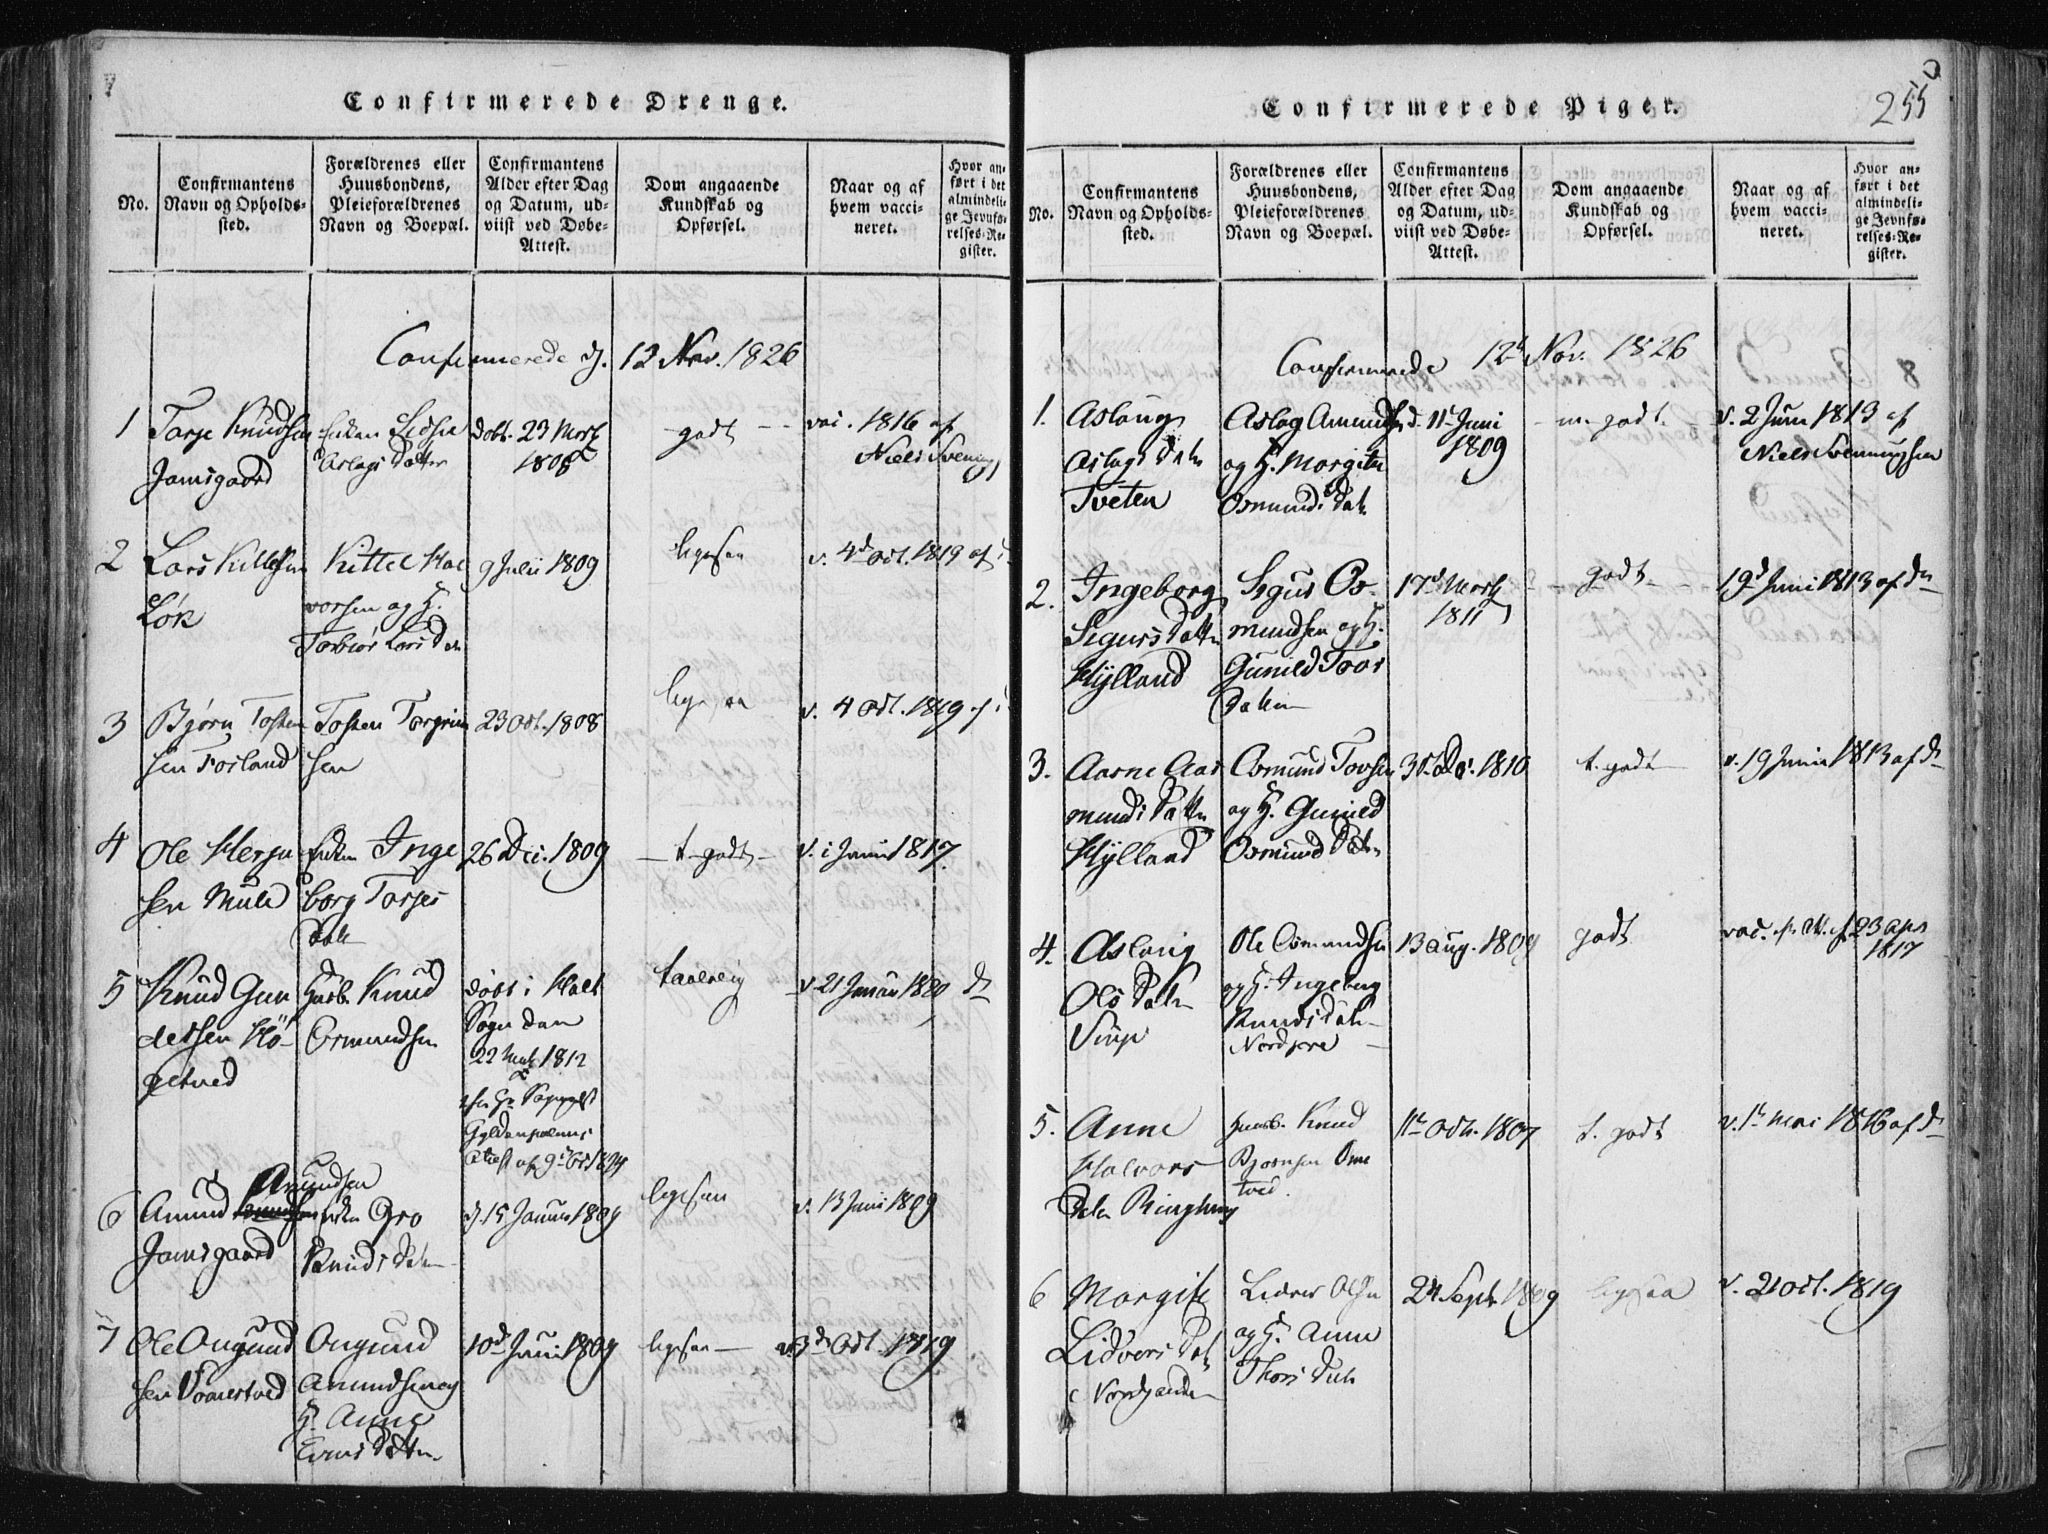 Confirmerede Drenge.
No.
Confirmantens
Navn og Opholds-
sted.
Forældrenes eller
Huusbondens,
Pleieforældrenes
Navn og Boepæl.
Confirmantens
Alder efter Dag
og Datum, ud-
viist ved Døbe-
Attest.
Dom angaaende
Kundskab og
Opførsel.
Naar og af
hvem vacci-
neret.
Hvor an-
ført i det
almindeli-
ge Jevnfø-
relses-Re-
gister.
Confirmerede d. 12 Nov. 1826
1 Tarje Knudsen
Jamsgaard
Aslags datter
døbt. 23 Marti
1808
godt
vac. 1816 af
Niels Svenungs
2 Lars Kittelsen
Løk
Kittel Hal
vorsen og H.
Torbiør Lars Dat
9 Julii 1809
ligesaa
v. 4d Oct. 1819 af
3 Bjørn Tosten
sen Forland
Tosten Torgrim
sen
23 Oct. 1808
ligesaa
v. 4 Oct. 1819 af
4 Ole Herju
sen Mule
Enken Inge
borg Tarjes
Datr
26 Dec. 1809
t. godt
v. 1 Juni 1817.
5 Knud Gun
detsen Hö-
getved
Husb. Knud
Osmundsen
døbt i Holt
Sogn den
22 Mart. 1812
Gyldenpalms
Attest af 9d Oct 1824
taalelig
v 21 Januar 1820
6 Amund Amundsen
Jamsgaard
Enken Gro
Knuds datr
d. 15 Januar 1809
ligesaa
v. 13 Juni 1809
7 Ole Ougund
sen Vaanertved
Ougund
Amundsen og
H. Anne
Evens Datter
10d Juni 1809
ligesaa
v. 3d Oct. 1819
Confirmerede Piger.
255
No.
Confirmantens
Navn og Opholds-
sted.
Forældrenes eller
Huusbondens,
Pleieforældrenes
Navn og Boepæl.
Confirmantens
Alder efter Dag
og Datum, ud-
viist ved Døbe-
Attest.
Dom angaaende
Kundskab og
Opførsel.
Naar og af
hvem vacci-
neret.
Hvor an-
ført i det
almindeli-
ge Jevnfø-
relses-Re-
gister.
Confirmerede 12t Nov. 1826
1. Aslaug
Aslags datr
Tveten
Aslag Amunds
og H. Margite
Osmunds Datr
d. 11t Juni
1809
m. godt.
v. 2 Juni 1813 af
Niels Svenningsen
2. Ingeborg
Sigurs Datter
Hylland
Sigur Os-
mundsen og H.
Gunild Tovs
Datter
17d Marti
1811
godt
19d Juni 1813 af dn
3. Aasne Aas
munds Datter
Hylland
Osmund Tovsen
og H. Gunild
Osmunds Datr
31t Dec. 1810
t. godt
v. 19 Juni 1813 af dn
4. Aslaug
Ols Datr
Ole Osmundsen
og H. Ingeborg
Knuds Datr
13 Aug. 1809
godt
23 Apr
1817
5. Anne
Halvors
Datr
Huusb. Knud
Bjørnsen One
tved.
11te Octr. 1807
t. godt
v. 1t Mai 1816 af dn
6 Margit
Lidvers Datr
Lidver Olsen
og H. Anne
Thors Datr
24 Sept. 1809
ligesaa
v. 21 Oct. 1819